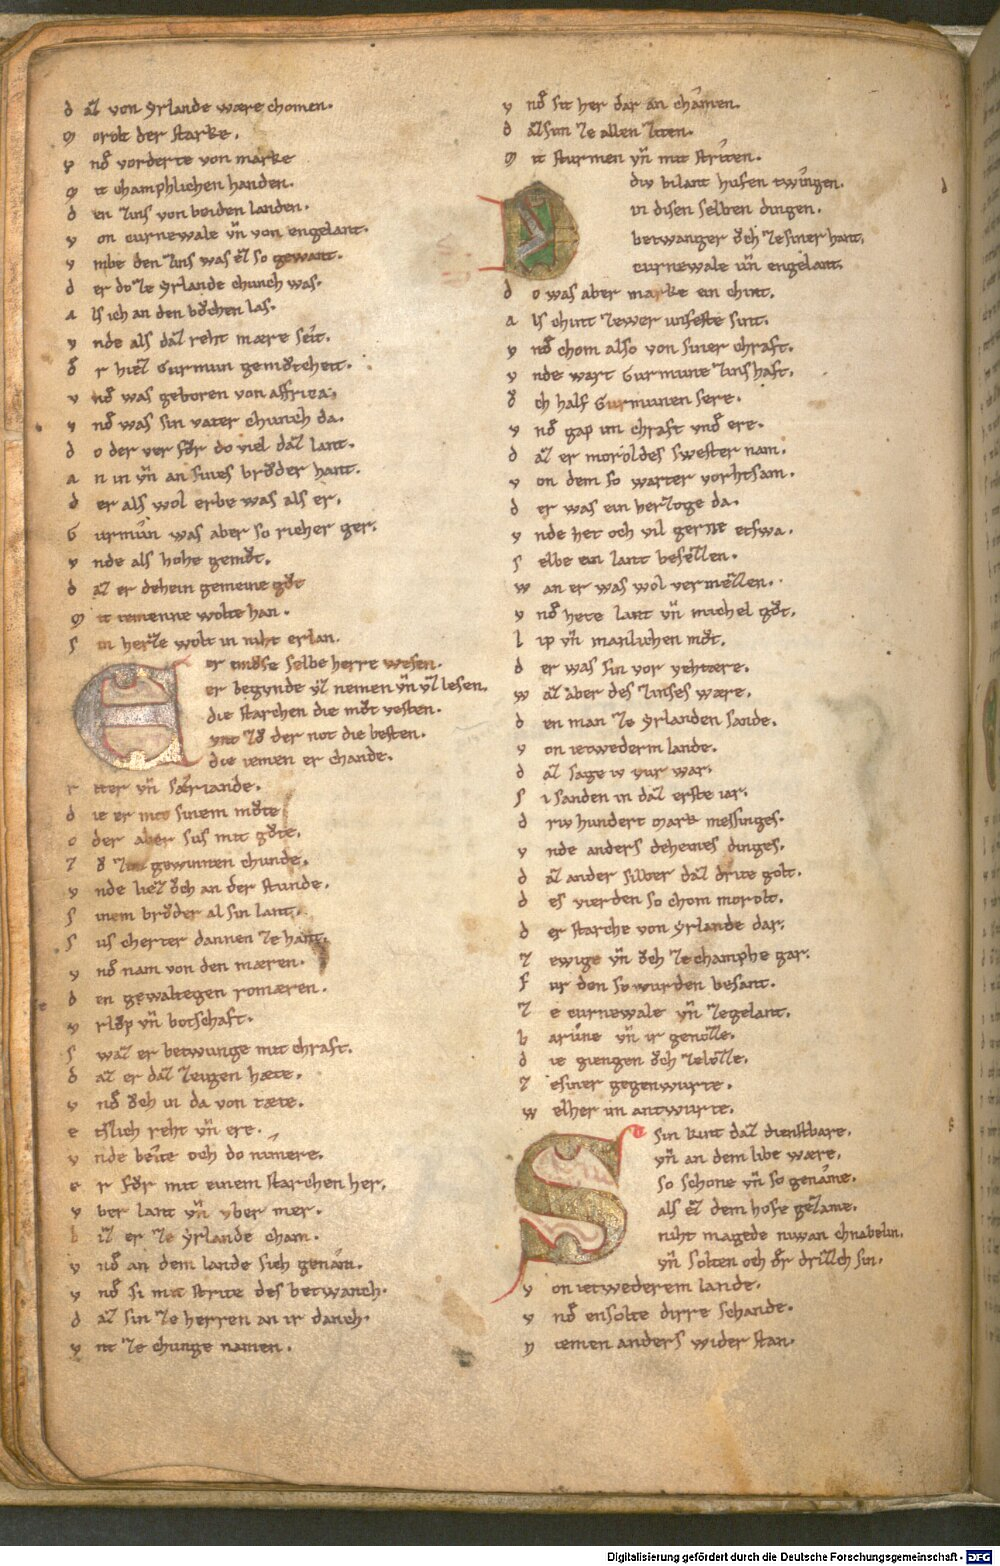 d aꝫ von Yrlande wære chomen.
M orolt der starke.
v nͦd vorderte von marke
M it champhlichen handen.
d en zins von beiden landen.
v on curnewale vn̄ von engelant.
v mbe den zins was eꝫ so gewant.
d er do ze Yrlande chunch was.
a ls ich an den bvͦchen las.
v nde als daꝫ reht mære seit.
d r hieꝫ Gurmun gemvͦtcheit.
v nͦd was geboren von affrica.
v nͦd was sin vater chunch da.
d o der ver fvͦr do viel daꝫ lant.
a n in vn̄ an sines brvͦder hant.
d er als wol erbe was als er.
G urmun was aber so richer ger.
v nde als hohe gemvͦt.
d aꝫ er dehein gemeine gvͦt
M it iemenne wolte han.
S in herze wolt in niht erlan.
er mvͦse selbe herre wesen.
er begunde vꝫ nemen vn̄ vꝫ lesen.
die starchen die mvͦt vesten.
vnt zvͦ der not die besten.
die iemen er chande.
r itter vn̄ sariande.
d ie er mit sinem mvͦte
o der aber sus mit gvͦte.
z vͦ zim gewinnen chunde.
v nde lieꝫ vͦch an der stunde.
S inem brvͦder al sin lant.
S us cherter dannen ze hant.
v nͦd nam von den mæren.
d en gewaltegen romæren.
v rlvͦp vn̄ botschaft.
S waꝫ er betwunge mit chraft.
d aꝫ er daꝫ zeigen hæte.
v nͦd vͦch in da von tæte.
e tslich reht vn̄ ere.
v nde beite och do nimere.
e r fvͦr mit einem starchen her.
v ber lant vn̄ vber mer.
b iꝫ er ze Yrlande cham.
v nͦd an dem lande sich genam.
v nͦd si mit strite des betwanch.
d aꝫ sin ze herren an ir danch.
v nt ze chunge namen.
v nͦd sit her dar an chamen.
d aꝫ sim ze allen ziten.
M it sturmen vn̄ mit striten.
div bilant hulfen twingen.
in disen selben dingen.
betwanger vͦch ze siner hant.
curnewale vn̄ engelant.
d o was aber marke ein chint.
a ls chint zewer unfeste sint.
v nͦd chom also von siner chraft.
v nde wart Gurmune zinshaft.
v ch half Gurmunen sere.
v nͦd gap im chraft vnͦd ere.
d aꝫ er moroldes swester nam.
v on dem so warter vorhtsam.
d er was ein herzoge da.
v nde het och vil gerne etswa.
s elbe ein lant beseꝫꝫen.
w an er was wol vermeꝫꝫen.
v nͦd hete lant vn̄ michel gvͦt.
l ip vn̄ manlichen mvͦt.
d er was sin vor vehtære.
w aꝫ aber des zinses wære.
d en man ze Yrlanden sande.
v on ietwederm lande.
d aꝫ sage iv vur war.
S i sanden in daꝫ erste iar.
d riv hundert mark messinges.
v nde anders deheines dinges.
d aꝫ ander silber daꝫ drite golt.
d es vierden so chom morolt.
d er starche von Yrlande dar.
z ewige vn̄ vͦch ze champhe gar.
f ur den so wurden besant.
z e curnewale vn̄ zegelant.
b arune vn̄ ir genoꝫꝫe.
d ie giengen vͦch zeloꝫꝫe.
z esiner gegenwurte.
w elher im antwurte.
sin kint daꝫ dienstbare.
vn̄ an dem libe wære.
so schone vn̄ so genæme.
als eꝫ dem hofe gezæme.
niht magede niwan chnabelin.
vn̄ solten och der driꝫꝫch sin.
v on ietwederem lande.
v nͦd ensolte dirre schande.
n iemen anders wider stan.
Digitalisierung gefördert durch die Deutsche Forschungsgemeinschaft - DFG